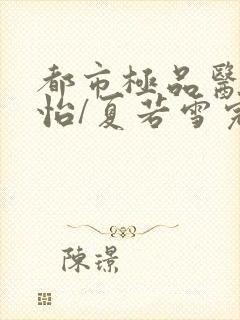 都市極品醫
怡/夏若雪
陳璟